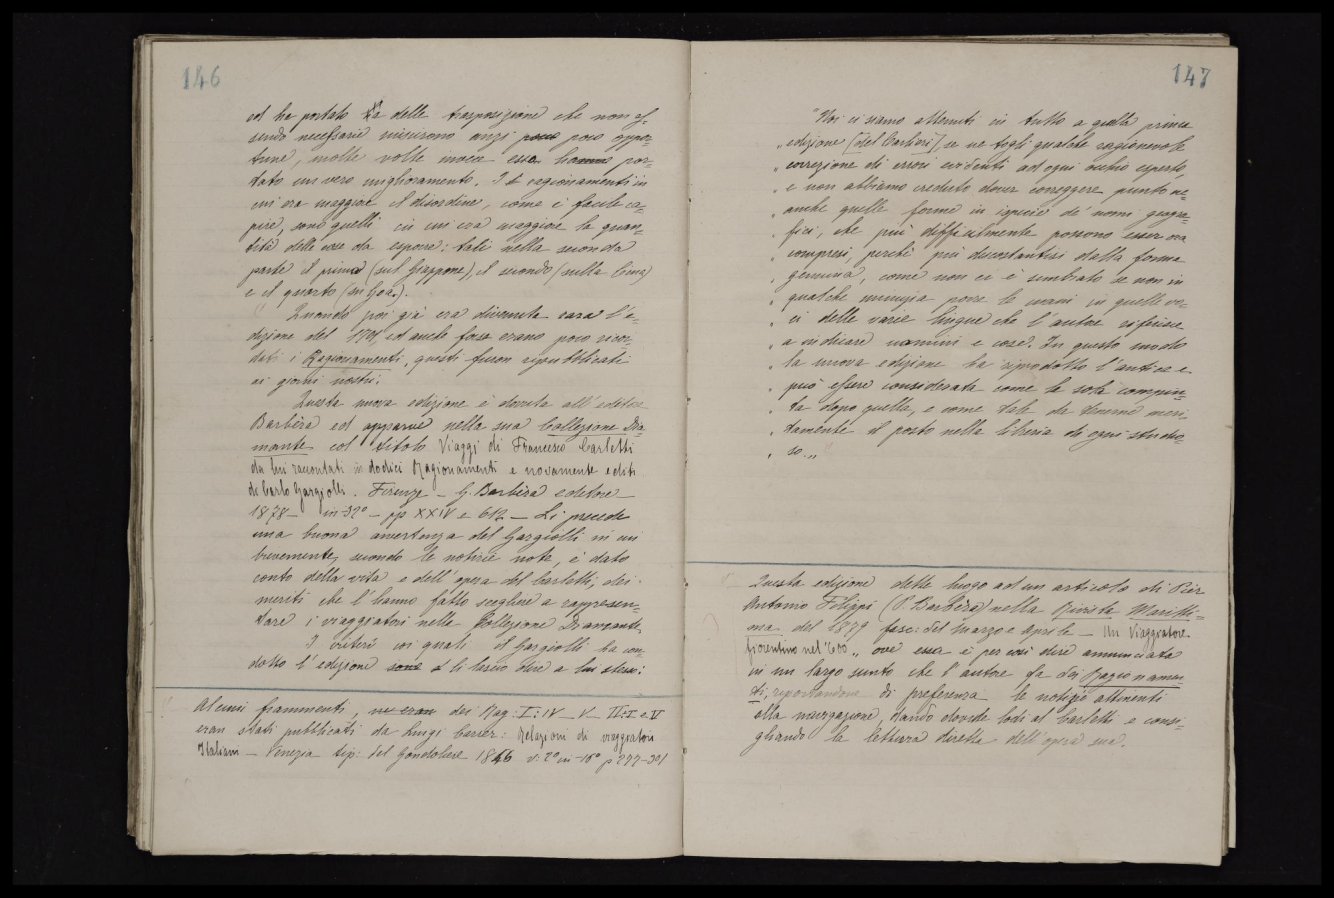 146
ed ha portato delle trasposizione che non es=
sendo necessarie riuscirono anzi poco poco oppor=
tune, molte volte invece essa hanno por=
tato un vero miglioramento. I ragionamenti in
cui era maggiore il disordine, come è facile ca=
pire, sono quelli in cui era maggiore la quan=
tità delle cose da esporre: tali nella seconda
parte il primo (sul Giappone), il secondo (sulla Cina)
e il quarto (su Goa).
Quando poi già era divenuta rara l'e=
dizione del 1701, ed anche forse erano poco ricor=
dati i Ragionamenti, questi furon ripubblicati
ai giorni nostri.
Questa nuova edizione è dovuta all'editore
Barbèra ed apparve nella sua Collezione Dia=
mante col titolo Viaggi di Francesco Carletti
da lui raccontati in dodici Ragionamenti e novamente editi
da Carlo Gargiolli. Firenze – G. Barbèra editore
1878 – in-32° – pp XXIV e 612 – Li precede
una buona avvertenza del Gargiolli in cui
brevemente, secondo le notizie note, è dato
conto della vita e dell'opera del Carletti, dei
meriti che l'hanno fatto scegliere a rappresen=
tare i viaggiatori nella Collezione Diamante.
I criteri coi quali il Gargiolli ha con=
dotto l'edizione sono li lascio dire a lui stesso:
Alcuni frammenti, ne eran dei Rag: I: IV – V – II: I e V
eran stati pubblicati da Luigi Carrer: Relazioni di viaggiatori
Italiani – Venezia tip: del Gondoliere 1846 v: 2° in-16° p 277-301
147
"Noi ci siamo attenuti in tutto a quella prima
„ edizione (del Carlieri) se ne togli qualche ragionevole
„ correzione di errori evidenti ad ogni occhio esperto,
„ e non abbiamo creduto dover correggere punto ne=
„ anche quelle forme in ispecie de' nomi geogra=
„ fici, che più difficilmente possono esser ora
„ compresi, perchè più discostantisi dalla forma
„ genuina, come non ci è sembrato se non in
„ qualche minuzia porre le mani in quelle vo=
„ ci delle varie lingue che l'autore riferisce
„ a indicare uomini e cose. In questo modo
„ la nuova edizione ha riprodotto l'antica e
„ può essere considerata come la sola compiu=
„ ta dopo quella, e come tale da tenerne meri=
„ tamente il posto nella libreria di ogni studio=
„ so.„
Questa edizione dette luogo ad un articolo di Pier
Antonio Filippi (P. Barbèra) nella Rivista Maritti=
ma del 1879 fasc: del Marzo e Aprile – Un Viaggiatore
fiorentino nel '600 „ ove essa è per così dire annunciata
in un largo sunto che l'autore fa dei Ragionamen=
ti, riportandone di preferenza le notizie attinenti
alla navigazione, dando dovute lodi al Carletti e consi=
gliando la lettura diretta dell'opera sua.